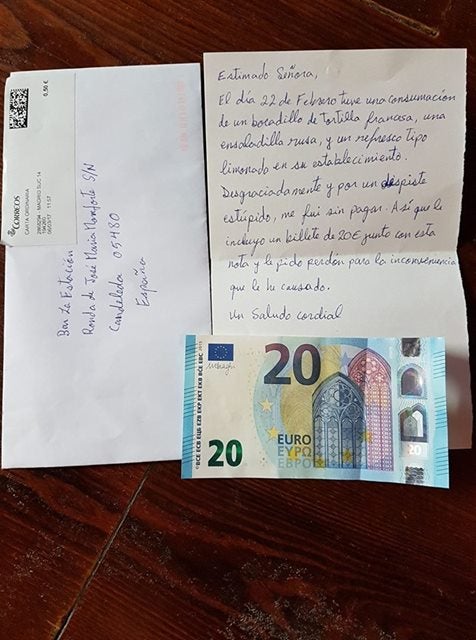 0,50 €
Correos
CARTA ORDINARIA
Bar La Estación
Ronda de José María Monforte S/N
Candeleda 05480
España
Estimado Señora,
El día 22 de Febrero tuve una consumación
de un bocadillo de Tortilla francasa, una
ensaladilla rusa, y un refresco tipo
limonado en su establecimiento.
Desgraciadamente y por un despiste
estúpido, me fui sin pagar. Así que le
incluyo un billete de 20€ junto con esta
nota y le pido perdón para la inconveniencia
que le he causado.
Un Saludo cordial
20
EURO
ΕΥΡΩ
ЕВРО
20
20